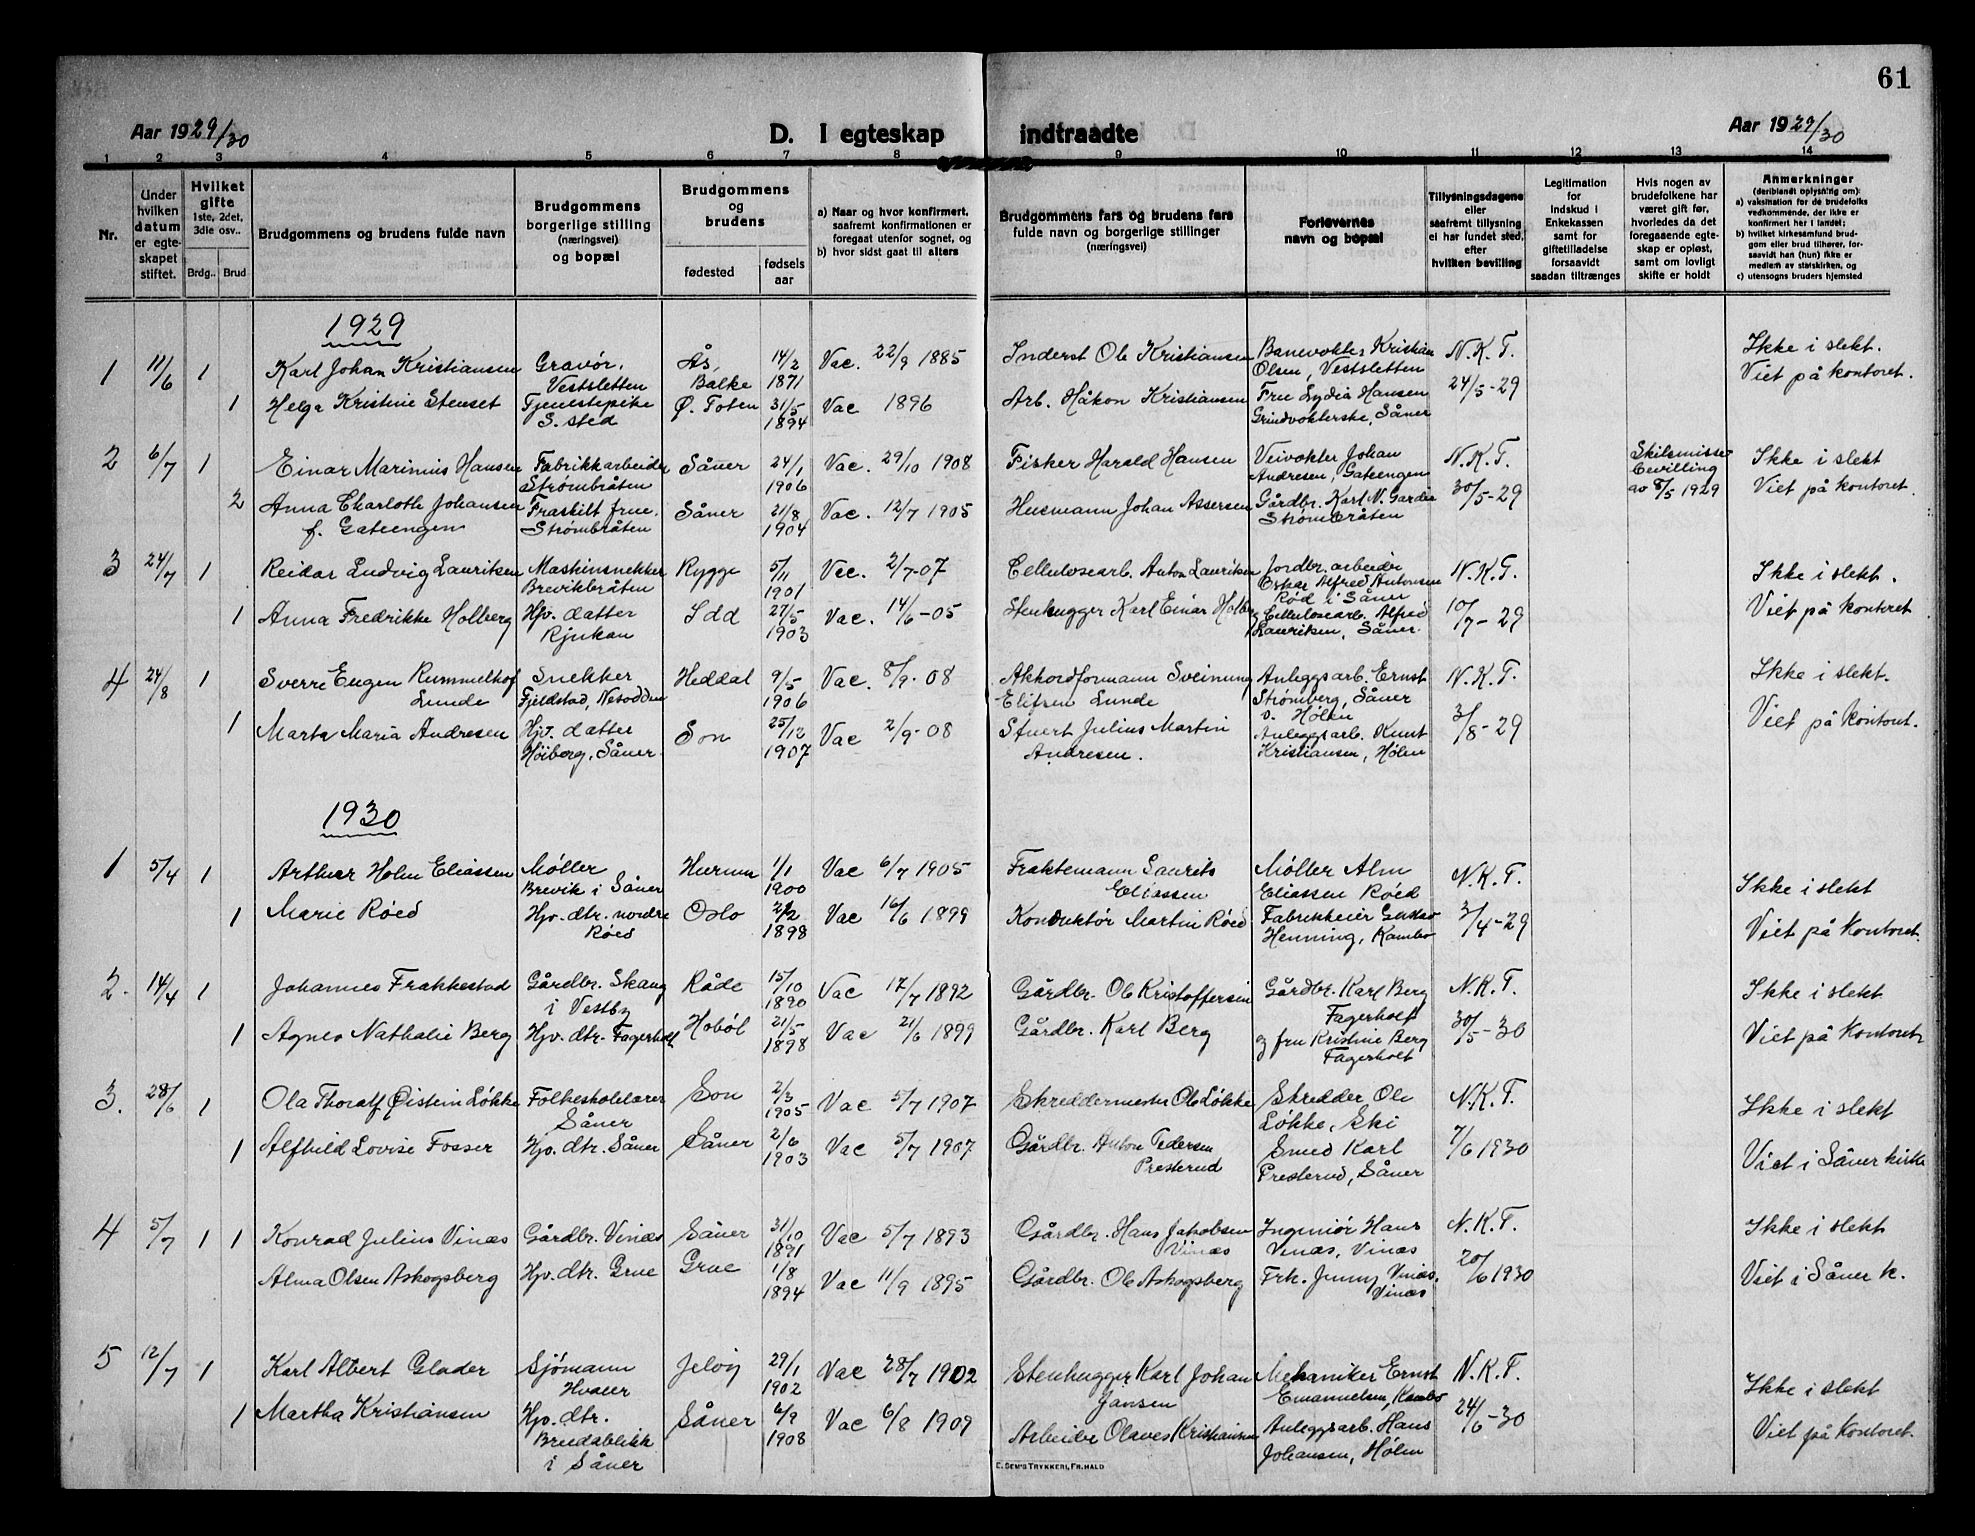 61
Aar 1929/30
D. I egteskap indtraadte
Aar 1929/30
1 2 3 4 5 6 7 8 9 10 11 12 13 14
Nr.
Under hvilken datum er egteskapet stiftet.
Hvilket gifte 1ste, 2det, 3die osv..
Brdg.. Brud
Brudgommens og brudens fulde navn
Brudgommens borgerlige stilling (næringsvei) og bopæl
Brudgommens og brudens
fødested
fødselsaar
a) Naar og hvor konfirmert, saafremt konfirmationen er foregaat utenfor sognet, og
b) hvor sidst gaat til alters
Brudgommens fars og brudens fars fulde navn og borgerlige stillinger (næringsvei)
Forlovernes navn og bopæl
Tillysningsdagene eller saafremt tillysning ei har fundet sted, efter hvilken bevilling
Legitimation for Indskud i Enkekassen samt for giftetilladelse forsaavidt saadan tiltrænges
Hvis nogen av brudefolkene har været gift før, hvorledes da det foregaaende egteskap er opløst, samt om lovligt skifte er holdt
Anmerkninger (deriblandt oplysning om):
a) vaksination for de brudefolks vedkommende, der ikke er konfirmert her i landet;
b) hvilket kirkesamfund brudgom eller brud tilhører, forsaavidt han (hun) ikke er medlem av statskirken, og
c) utensogns bruders hjemsted
1929
1 11/6 1 Karl Johan Kristiansen Gravør, Vestsletten Ås, 14/2 1871 Vac. 22/9 1885 Inderst Ole Kristiansen Banevokter Kristian Olsen, Vestsletten N.K.T. 24/5-29 Ikke i slekt. Viet på kontoret.
1 Helga Kristine Stenset Tjenestepike S. sted Balke Ø. Toten 31/5 1894 Vac 1896 Arb. Håkon Kristiansen Fru Lydia Hansen Grindvokterske, Såner
2 6/7 1 Einar Marinius Hansen Fabrikkarbeider Strømbråten Såner 24/1 1906 Vac. 29/10 1908 Fisker Harald Hansen Veivokter Johan Andresen, Gateengen N.K.T. 30/5-29 Skilsmisse bevilling av 8/5 1929 Ikke i slekt Viet på kontoret.
2 Anna Charloth Johansen f. Gateengen Fraskilt frue. Strømbråten Såner 21/8 1904 Vac. 12/7 1905 Husmann Johan Assersen Gårdbr. Karl N. Garder Strømbråten
3 24/7 1 Reidar Ludvig Lauritsen Maskinsnekker Brevikbråten Rygge 5/11 1901 Vec. 2/7-07 Cellulosearb. Anton Lauritsen Jordbr. arbeider Oskar Alfred Antonsen Rød i Såner N.K.T. 10/7-29 Ikke i slekt. Viet på kontoret
1 Anna Fredrikke Holberg Hjv. datter Rjukan Idd 27/5 1903 Vac. 14/6-05 Stenhugger Karl Einar Holberg og Cellulosearb. Alfred Lauritsen, Såner.
4 24/8 1 Sverre Eugen Rummelhof Lunde Snekker Fjeldstad, Nesodden Heddal 9/5 1906 Vac. 8/9-08 Akkordformann Sveinung Elifsen Lunde Anleggsarb. Ernst Strømberg, Såner v. Hølen N.K.T. 3/8-29 Ikke i slekt. Viet på kontoret.
1 Marta Maria Andresen Hjv. datter Høiberg, Såner. Son 25/12 1907 Vac 2/9-08 Stuert Julius Martin Andresen. Anleggsarb. Knut Kristiansen, Hølen
1930
1 5/4 1 Arthur Holm Eliassen Møller Brevik i Såner Hurum 1/1 1900 Vac 6/7 1905 Fraktemann Laurits Eliassen Møller Alm Eliassen Røed N.K.T. 3/4-29 Ikke i slekt Viet på kontoret.
1 Marie Røed Hjv. dtr. nordre Røed Oslo 2/2 1898 Vac 16/6 1899 Konduktør Martin Røed Fabrikkeier Gustav Henning, Kambo
2. 14/4 1 Johannes Frakkestad Gårdbr. Skaug i Vestby Råde 15/10 1890 Vac 17/7 1892 Gårdbr. Ole Kristoffersen Gårdbr. Karl Berg Fagerholt N.K.T. 30/5-30 Ikke i slekt Viet på kontoret
1 Agnes Nathalie Berg Hjv. dtr. Fagerholt Hobøl 21/5 1898 Vac 21/6 1899 Gårdbr. Karl Berg og fru Kristine Berg Fagerholt
3. 28/6 1 Ola Thoralf Øistein Løkke Folkeskolelærer Såner Son 2/3 1905 Vac 5/7 1907 Skreddermester Ole Løkke Skredder Ole Løkke, Ski N.K.T. 7/6 1930 Ikke i slekt Viet i Såner kirke
1 Alfhild Lovise Fosser Hjv. dtr. Såner Såner 2/6 1903 Vac 5/7 1907 Gårdbr. Anton Pedersen Presterud Smed Karl Presterud, Såner
4 5/7 1 1 Konrad Julius Vinæs Gårdbr. Vinæs Såner 31/10 1891 Vac 5/7 1893 Gårdbr. Hans Jakobsen Vinæs Ingeniør Hans Vinæs, Vinæs N.K.T. 20/6 1930 Ikke i slekt Viet i Såner k.
Alma Olsen Askogsberg Hjv. dtr. Grue Grue 1/8 1894 Vac 11/9 1895 Gårdbr. Ole Askogsberg Frk. Jenny Vinæs, Vinæs
5 12/7 1 Karl Albert Glader Sjømann Hvaler Jeløy 29/1 1902 Vac 28/7 1902 Stenhugger Karl Johan Jansen Mekaniker Ernst Emanuelsen, Kambo N.K.T. 24/6-30 Ikke i slekt Viet på kontoret.
1 Martha Kristiansen Hjv. dtr. Breidablikk i Såner Såner 6/9 1908 Vac 6/8 1909 Arbeider Olaves Kristiansen Anleggsarb. Hans Johansen, Hølen
E. SEM'S TRYKKERI, FR.HALD